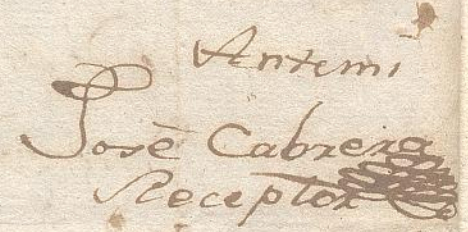 Antemi
Josè Cabrera
Receptor